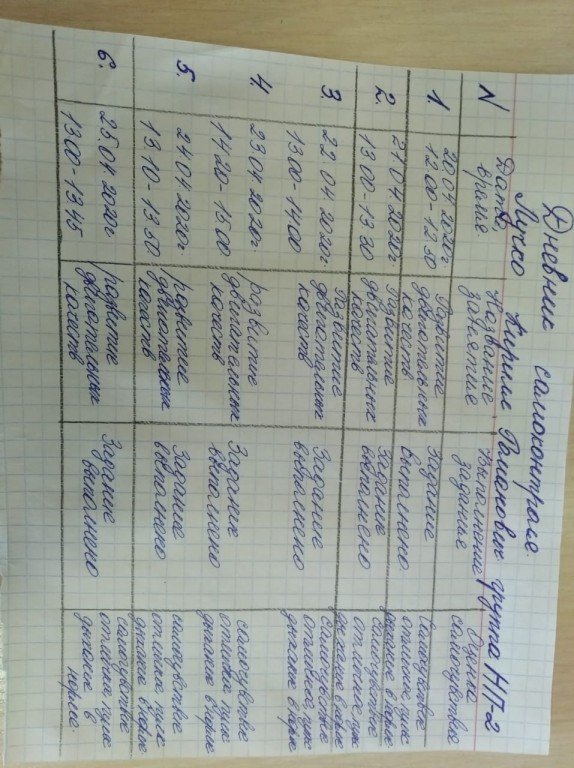 Дневник самоконтролье.
Лучко Кирилл Романович группа НП-2
N Дата, время. Название занятие Выполнение заданье Оценка самочувствия
1. 20.04.2020г. 12.00-12.50 Развитие двигательных качеств Задание выполнено Самочувствие отличное, пульс дыхание в норме
2. 21.04.2020г 13.00-13.30 Развитие двигательных качеств Задание выполнено самочувствие отличное пульс дыхание в норме
3. 22.04.2020г 13.00-14.00 Развитие двигательных качеств Задание выполнено самочувствие отличное, пульс дыхание в норме
4. 23.04.2020г 14.20-15.00 развитие двигательных качеств Задание выполнено самочувствие отличное пульс дыхание в норме
5. 24.04.2020г. 13.10-13.50 развитие двигательных качеств Задание выполнено самочувствие отлично, пульс дыхание в норме.
6. 25.04.2020г. 13.00-13.45 развитие двигательных качеств Задание выполнено самочувствие отлично, пульс дыхание в норме.